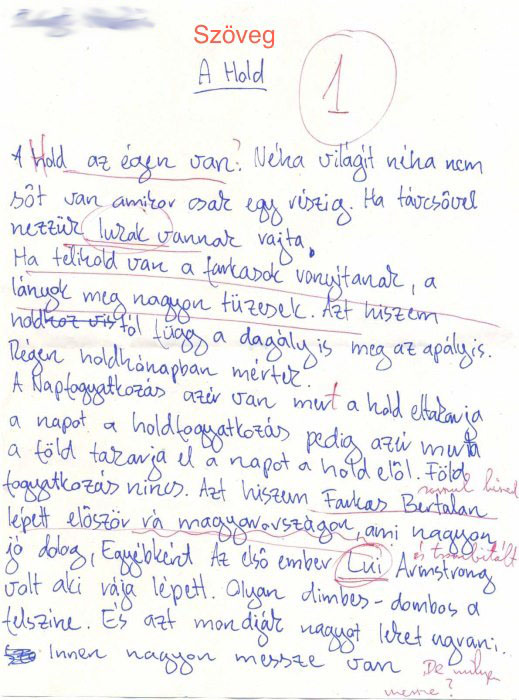 Szöveg
A Hold
1
A Hold az égen van? Néha világit néha nem
sőt van amikor csak egy részig. Ha távcsővel
nezzük lukak vannak rajta.
Ha telihold van a farkasok vonyitanak, a
lányok meg nagyon tüzesek. Azt hiszem
holdtól függ a dagály is meg az apály is.
Régen holdhónapban mértek.
A Napfogyatkozás azér van mert a hold eltakarja
a napot a holdfogyatkozás pedig azér mert
a föld takarja el a napot a hold elől. Föld
fogyatkozás nincs. Azt hiszem Farkas Bertalan
lépett először rá magyarországon, ami nagyon
és trombitált
jó dolog, Egyébként Az első ember Lui Armstrong
volt aki rája lépett. Olyan dimbes-dombos a
felszine. És azt mondják nagyot lehet ugrani.
Innen nagyon messze van
De milyen
messze?